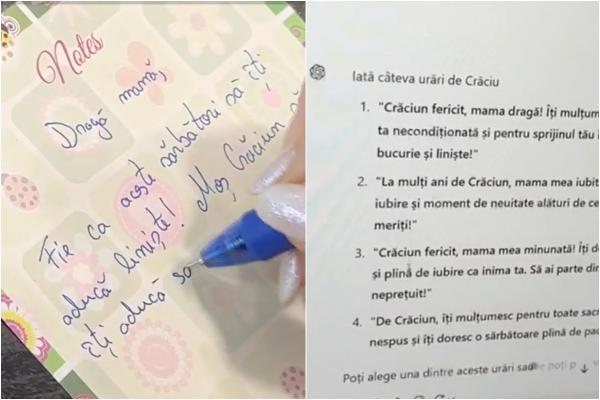 Notes
Dragă mamă,
Fie ca aceste sărbători să îți
aducă liniște! Moș Crăciun să
îți aducă
Iată câteva urări de Crăciu
1. "Crăciun fericit, mama dragă! Îți mulțum
ta necondiționată și pentru sprijinul tău
bucurie și liniște!"
2. "La mulți ani de Crăciun, mama mea iubit
iubire și moment de neuitate alături de ce
meriți!"
3. "Crăciun fericit, mama mea minunată! Îți d
și plină de iubire ca inima ta. Să ai parte din
neprețuit!"
4. "De Crăciun, îți mulțumesc pentru toate sac
nespus și îți doresc o sărbătoare plină de pac
Poți alege una dintre aceste urări sau